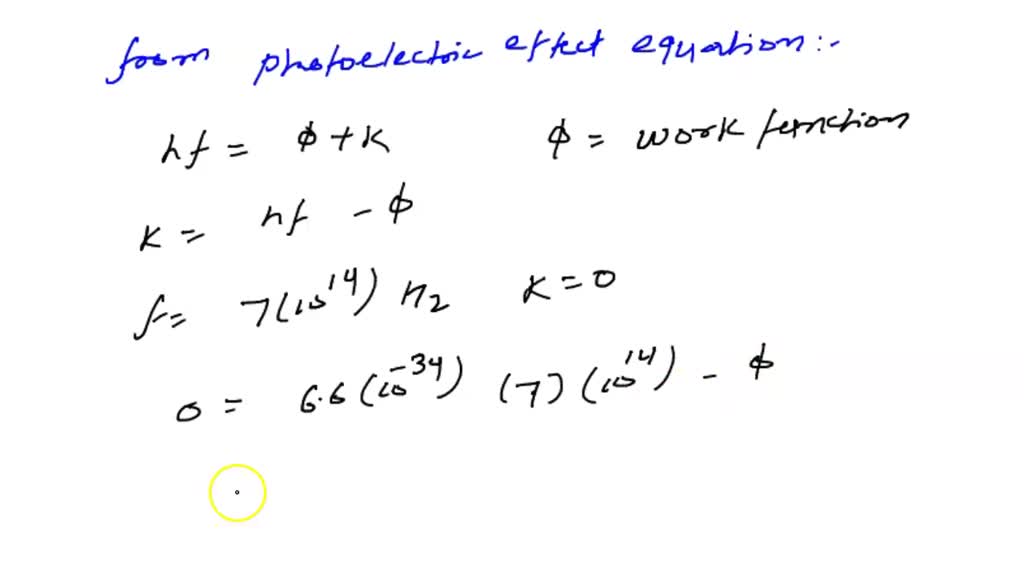 from photoelectric effect equation:-
hf = ϕ + K ϕ = work function
K = hf - ϕ
f = 7(10^14) Hz K = 0
0 = 6.6(10^-34) (7)(10^14) - ϕ